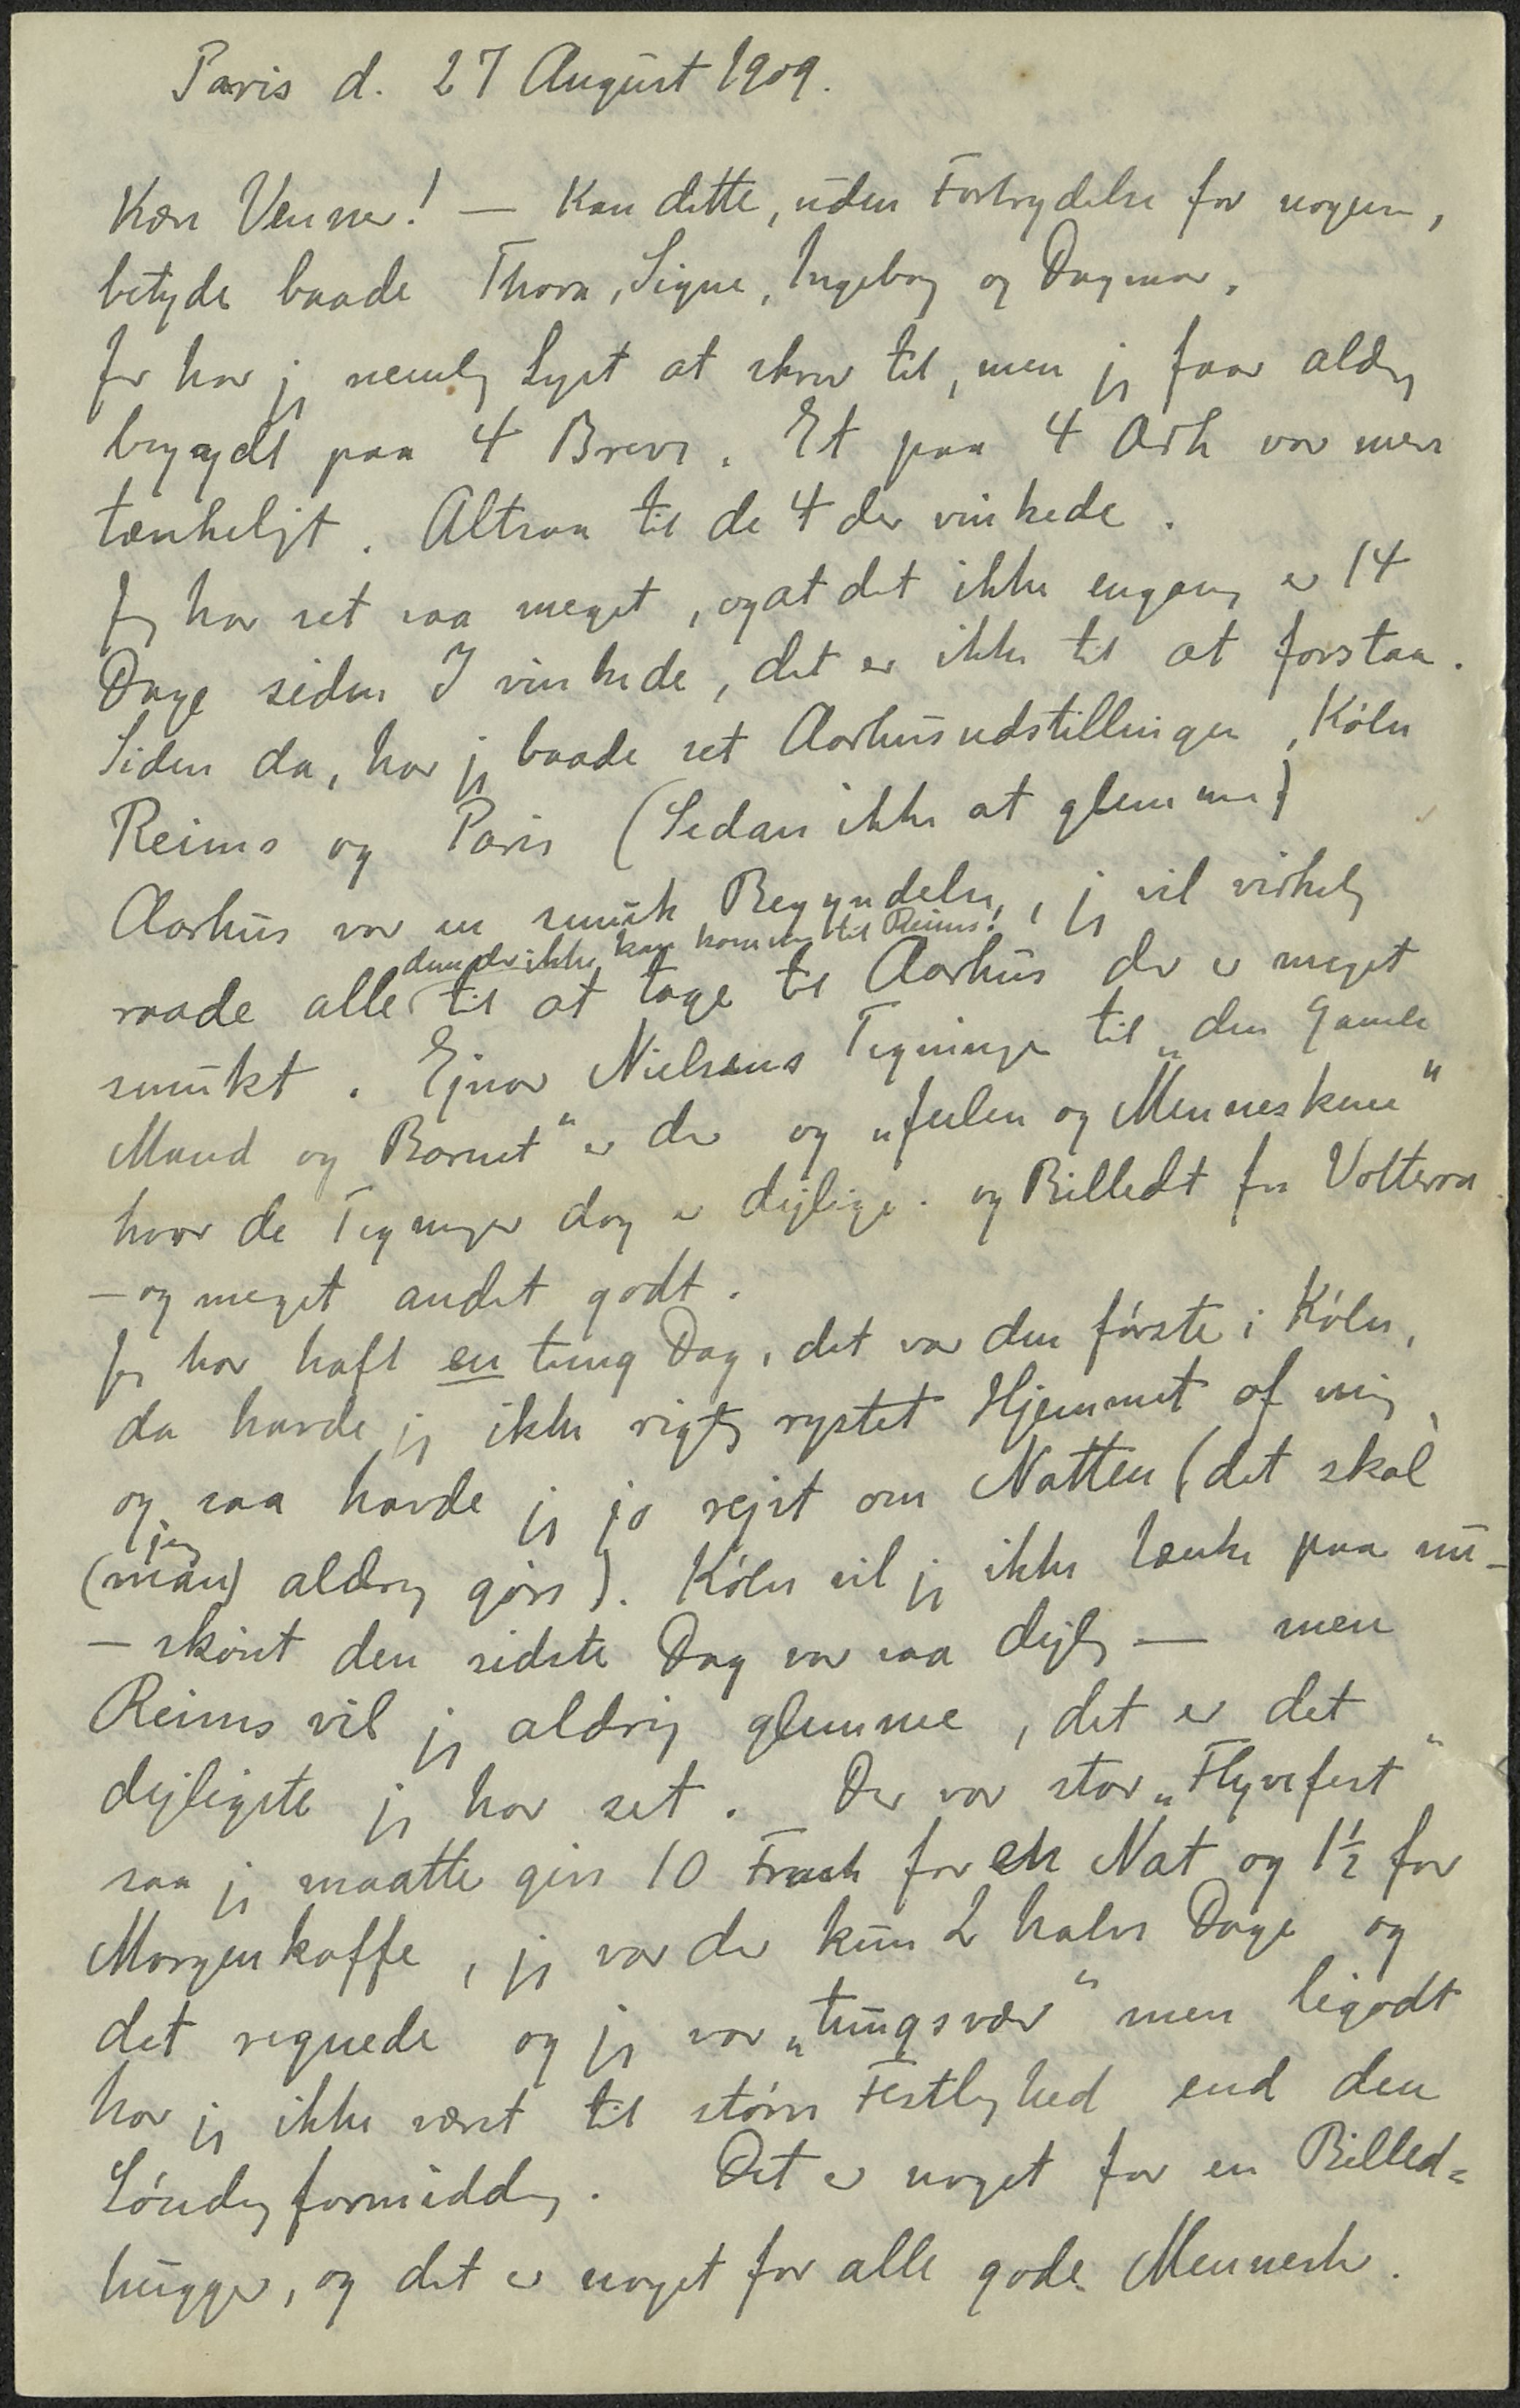 Paris d. 27 August 1909.
Kære Venner! — Kan dette, uden Fortrydelse for nogen,
betyde baade Thora, Signe, Ingeborg og Dagmar.
Jer har jeg nemlig Lyst at skrive til, men jeg faar aldrig
begyndt paa 4 Breve. Et paa 4 Ark var mere
tænkeligt. Altsaa til de 4 der vinkede.
Jeg har set saa meget, og at det ikke engang er 14
Dage siden I vinkede, det er ikke til at forstaa.
Siden da, har jeg baade set Aarhusudstillingen, Köln
Reims og Paris (Sedan ikke at glemme)
Aarhus var en smuk Begyndelse, jeg vil virkelig
dem der ikke kan komme til Reims!
raade alle til at tage til Aarhus der er meget
smukt. Ejnar Nielsens Tegninger til „den Gamle
Mand og Barnet“ er der og „ og Menneskene“
hvor de Tegninger dog er dejlige. og Billedet fra Volterra
— og meget andet godt.
Jeg har haft en tung Dag, det var den første i Köln,
da havde jeg ikke rigtig rystet Hjemmet af mig,
og saa havde jeg jo rejst om Natten (det skal
jeg
(man) aldrig gøre). Köln vil jeg ikke tænke paa nu —
— skønt den sidste Dag var saa dejlig — men
Reims vil jeg aldrig glemme, det er det
dejligste jeg har set. Der var stor „Flyvefest“
saa jeg maatte give 10 Frank for en Nat og 1½ for
Morgenkaffe, jeg var der kun 2 halve Dage og
det regnede og jeg var „tungsvær“ men ligodt
har jeg ikke været til større Festlighed end den
Söndag formiddag. Det er noget for en Billed=
hugger, og det er noget for alle gode Mennesker.